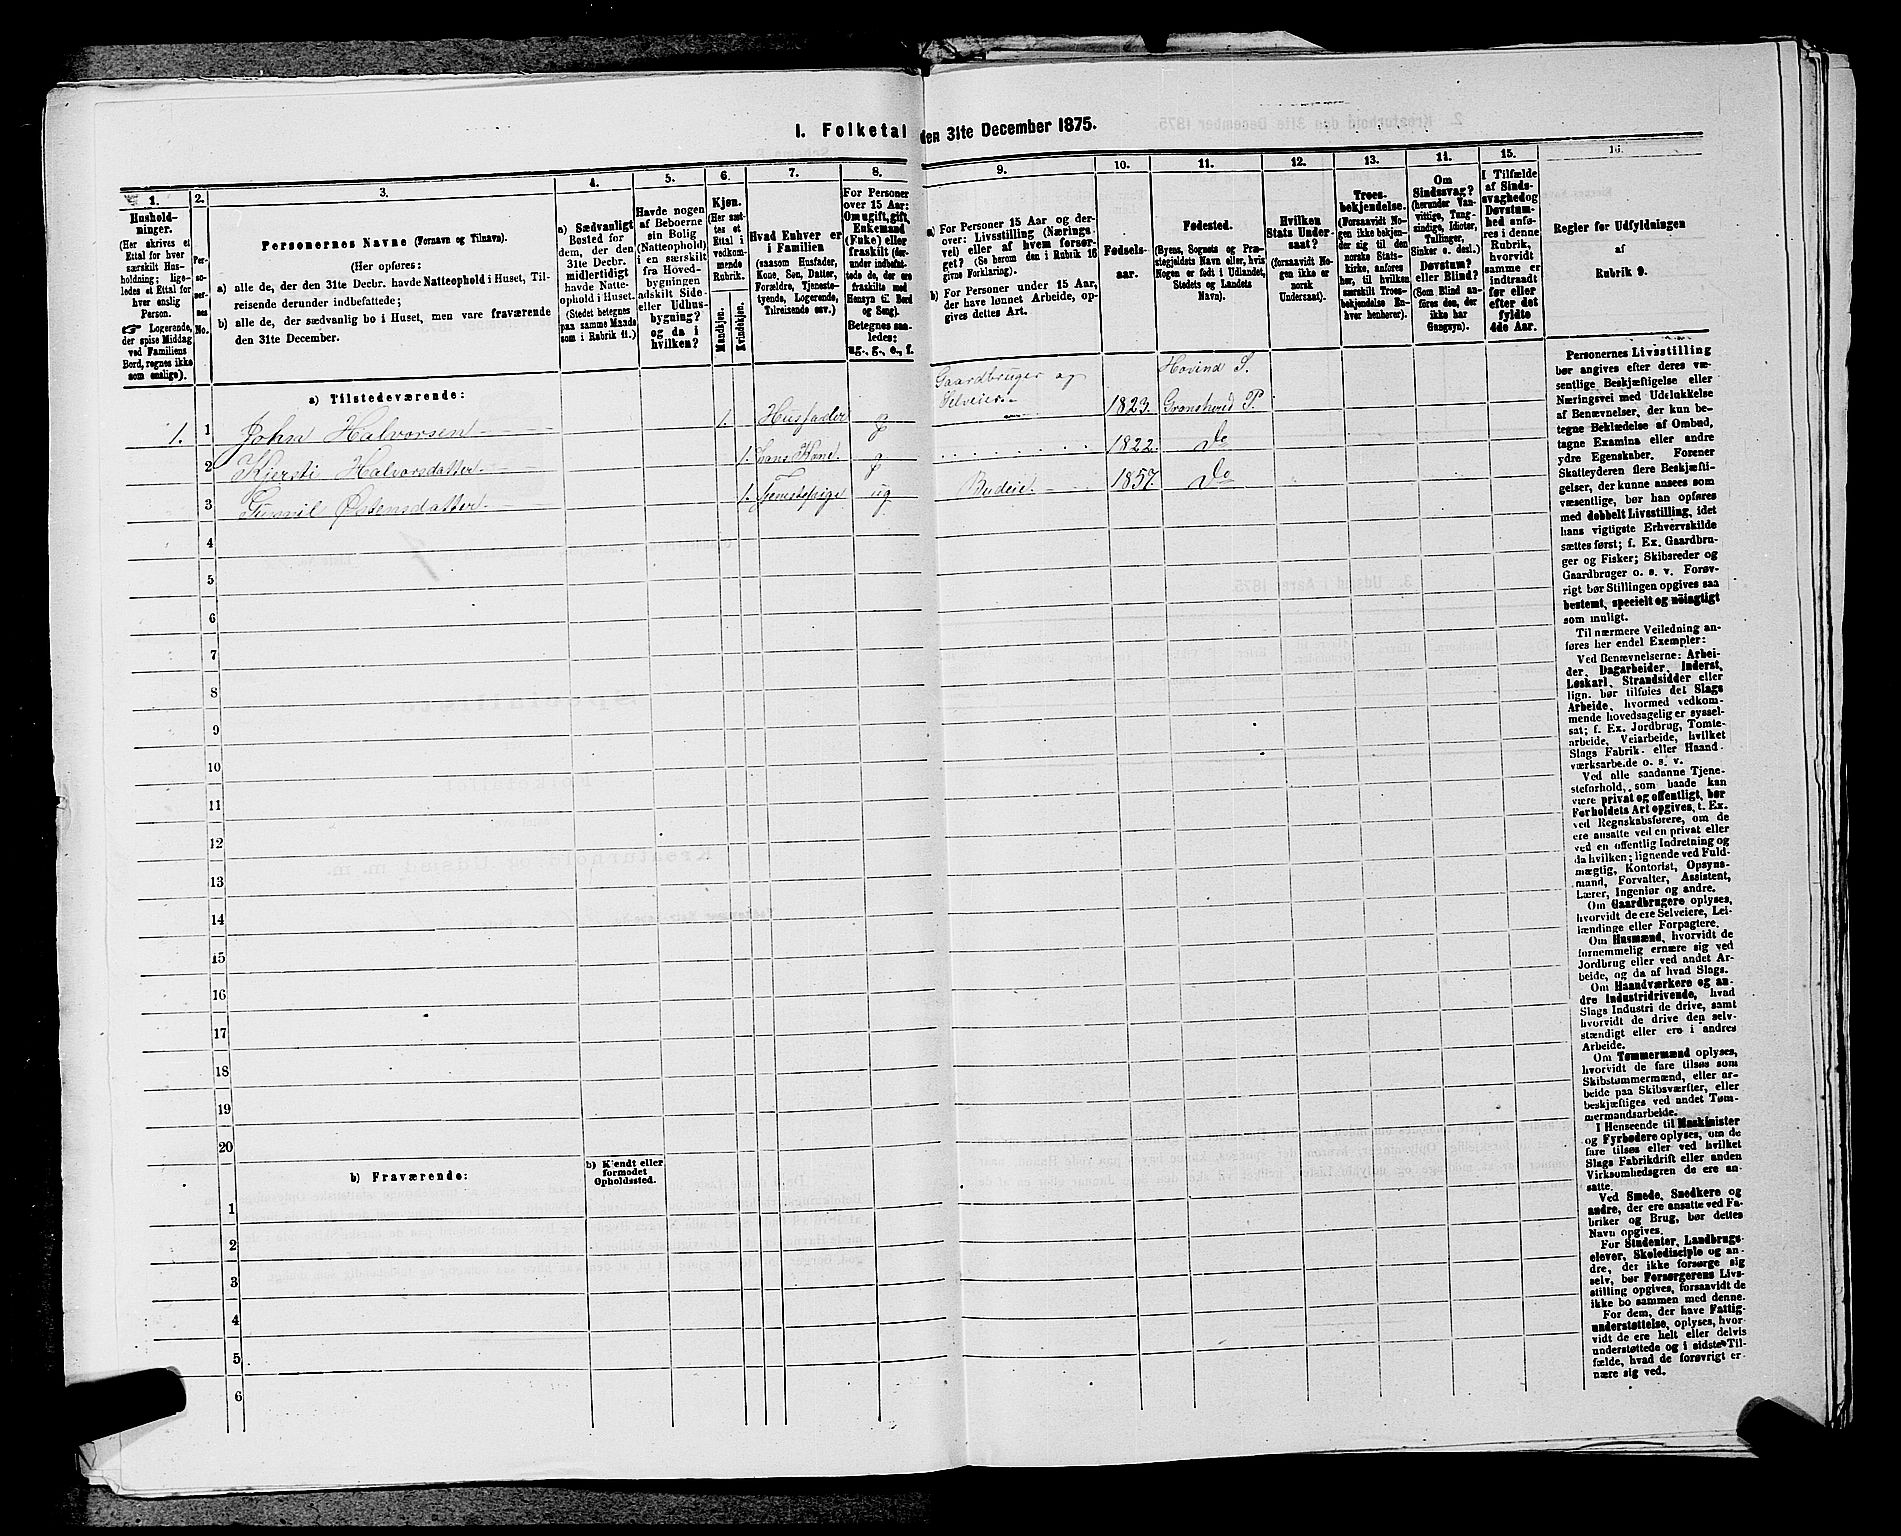 I. Folketal den 31te December 1875.
1.
Hushold-
ninger.
(Her skrives et
Ettal for hver
særskilt Hus-
holdning; lige-
ledes et Ettal for
hver enslig
Person.
☞ Logerende,
der spise Middag
ved Familiens
Bord, regnes ikke
som enslige).
2.
Per-
so-
ner-
nes
No.
3.
Personernes Navne (Fornavn og Tilnavn).
(Her opføres:
a) alle de, der den 31te Decbr. havde Natteophold i Huset, Til-
reisende derunder indbefattede;
b) alle de, der sædvanlig bo i Huset, men vare fraværende
den 31te December.
4.
a) Sædvanligt
Bosted for
dem, der den
31te Decbr.
midlertidigt
havde Natte-
ophold i Huset.
(Stedet betegnes
paa samme Maade
som i Rubrik 11.)
5.
Havde nogen
af Beboerne
sin Bolig
(Natteophold)
i en særskilt
fra Hoved-
bygningen
adskilt Side-
eller Udhus-
bygning?
og da i
hvilken?
6.
Kjøn.
(Her sæt-
tes et
Ettal i
vedkom-
mende
Rubrik.
Mandkjøn.
Kvindekjøn.
7.
Hvad Enhver er
i Familien
(saasom Husfader,
Kone, Søn, Datter,
Forældre, Tjeneste-
tyende, Logerende,
Tilreisende osv.)
8.
For Personer
over 15 Aar:
Om ugift, gift,
Enkemand
(Enke) eller
fraskilt (der-
under indbefat-
tede de, der ere
fraskilte med
Hensyn til Bord
og Seng).
Betegnes saa-
ledes:
ug., g., e., f.
9.
a) For Personer 15 Aar og der-
over: Livsstilling (Nærings-
vei) eller af hvem forsør-
get? (Se herom den i Rubrik 16
givne Forklaring).
b) For Personer under 15 Aar,
der have lønnet Arbeide, op-
gives dettes Art.
10.
Fødsels-
aar.
11.
Fødested.
(Byens, Sognets og Præ-
stegjeldets Navn eller, hvis
Nogen er født i Udlandet,
Stedets og Landets
Navn).
12.
Hvilken
Stats Under-
saat?
(forsaavidt No-
gen ikke er
norsk
Undersaat).
13.
Troes-
bekjendelse.
(Forsaavidt No-
gen ikke bekjen-
der sig til den
norske Stats-
kirke, anføres
her, til hvilken
særskilt Troes-
bekjendelse En-
hver henhører).
14.
Om
Sindssvag?
(herunder Van-
vittige, Tung-
sindige, Idioter,
Tullinger,
Sinker o. desl.)
Døvstum?
eller Blind?
(Som Blind an-
føres den, der
ikke har
Gangsyn).
15.
I Tilfælde
af Sinds-
svaghed og
Døvstum-
hed anfø-
res i denne
Rubrik,
hvorvidt
samme er
indtraadt
før eller
efter det
fyldte
4de Aar.
16.
Regler for Udfyldningen
af
Rubrik 9.
a) Tilstedeværende:
Gaardbruger og Hovind S.
1. 1 John Halvorsen 1. Husfader g Selveier 1823. Gransherad P.
2 Kjersti Halvorsdatter 1. hans Kone. g 1822 Do
3 Gunnil Østensdatter 1. Tjenestepige ug Budeie 1857. Do
4
5
6
7
8
9
10
11
12
13
14
15
16
17
18
19
20
b) Fraværende:
b) Kjendt eller
formodet
Opholdssted.
1
2
3
4
5
6
Personernes Livsstilling
bør angives efter deres væ-
sentlige Beskjæftigelse eller
Næringsvei med Udelukkelse
af Benævnelser, der kun be-
tegne Beklædelse af Ombud,
tagne Examina eller andre
ydre Egenskaber. Forener
Skatteyderen flere Beskjæfti-
gelser, der kunne ansees som
væsentlige, bør han opføres
med dobbelt Livsstilling, idet
hans vigtigste Erhvervskilde
sættes først; f. Ex. Gaardbru-
ger og Fisker; Skibsreder og
Gaardbruger o. s. v. Forøv-
rigt bør Stillingen opgives saa
bestemt, specielt og nøiagtigt
som muligt.
Til nærmere Veiledning an-
føres her endel Exempler:
Ved Benævnelserne: Arbei-
der, Dagarbeider, Inderst,
Løskarl, Strandsidder eller
lign. bør tilføies det Slags
Arbeide, hvormed vedkom-
mende hovedsagelig er syssel-
sat; f. Ex. Jordbrug, Tomte-
arbeide, Veiarbeide, hvilket
Slags Fabrik- eller Haand-
værksarbeide o. s. v.
Ved alle saadanne Tjene-
steforhold, som baade kan
være privat og offentligt, bør
Forholdets Art opgives, t. Ex.
ved Regnskabsførere, om de
ere ansatte ved en privat eller
ved en offentlig Indretning og
da hvilken; lignende ved Fuld-
mægtig, Kontorist, Opsyns-
mand, Forvalter, Assistent,
Lærer, Ingeniør og andre.
Om Gaardbrugere oplyses,
hvorvidt de ere Selveiere, Lei-
lændinge eller Forpagtere.
Om Husmænd, hvorvidt de
fornemmelig ernære sig ved
Jordbrug eller ved andet Ar-
beide, og da af hvad Slags.
Om Haandværkere og an-
dre Industridrivende, hvad
Slags Industri de drive, samt
hvorvidt de drive den selv-
stændigt eller ere i andres
Arbeide.
Om Tømmermænd oplyses,
hvorvidt de fare tilsøs som
Skibstømmermænd, eller ar-
beide paa Skibsværfter, eller
beskjæftiges ved andet Tøm-
mermandsarbeide.
I Henseende til Maskinister
og Fyrbødere oplyses, om de
fare tilsøs eller ved hvilket
Slags Fabrikdrift eller anden
Virksomhedsgren de ere an-
satte.
Ved Smede, Snedkere og
andre, der ere ansatte ved Fa-
briker og Brug, bør dettes
Navn opgives.
For Studenter, Landbrugs-
elever, Skoledisciple og an-
dre, der ikke forsørge sig
selv, bør Forsørgerens Livs-
stilling opgives, forsaavidt de
ikke bo sammen med denne.
For dem, der have Fattig-
understøttelse, oplyses, hvor-
vidt de ere helt eller delvis
understøttede og i sidste Til-
fælde, hvad de forøvrigt er-
nære sig ved.